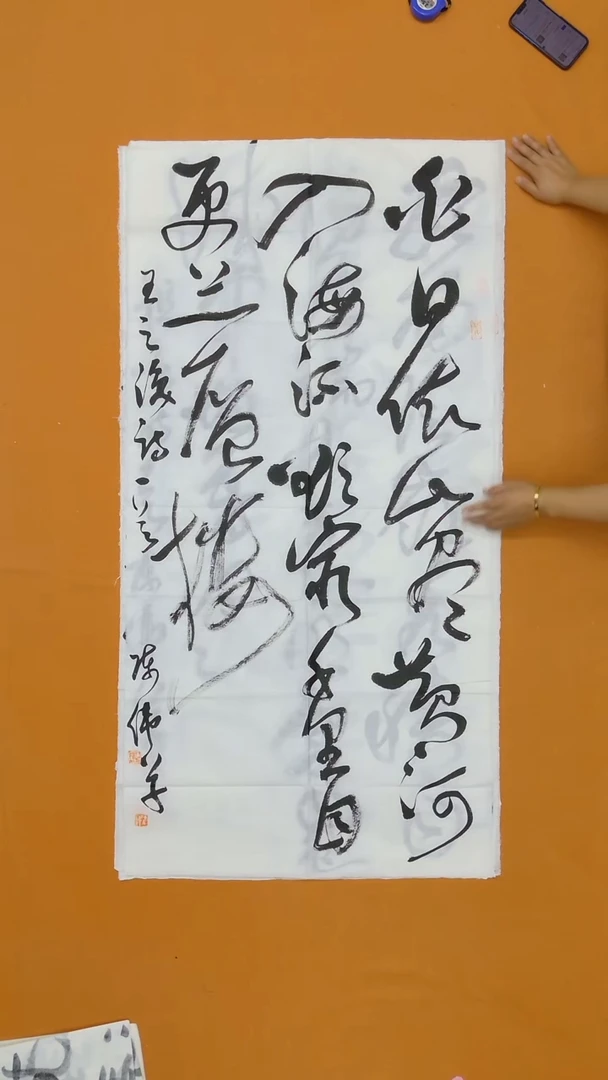 白日依山尽黄河
入海流欲穷千里目
更上一层楼
王之涣诗一首
陈伟